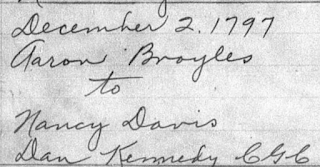 December 2, 1797
Aaron Broyles
to
Nancy Davis
Dan Kennedy CGC